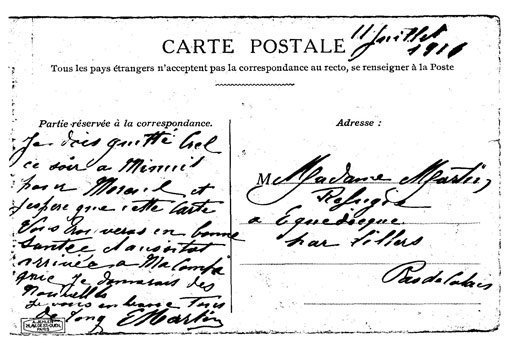 11 Juillet
1916
CARTE POSTALE
Tous les pays étrangers n'acceptent pas la correspondance au recto, se renseigner à la Poste
Partie réservée à la correspondance.
Je dois quitté Creil
ce soir a Minuit
pour Moreuil et
j'espere que cette Carte
Vous trouveras en bonne
Santée d'aussitot
arrivée a Ma Compa
gnie Je donnerais des
Nouvelles
Je vous embrasse Tous
de long EMartin
Adresse :
M Madame Martin
Refugiée
a Equedecque
par Lillers
Pas de Calais
PARIS